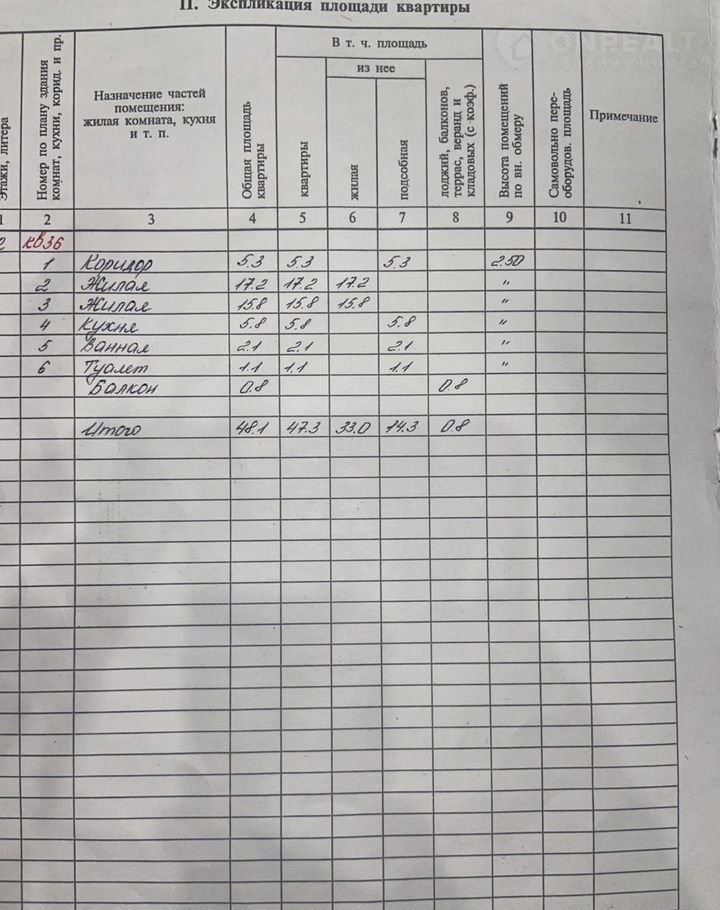 II. Экспликация площади квартиры
ONREALT
НЕДВИЖИМОСТЬ
Этажи, литера
Номер по плану здания комнат, кухни, корид. и пр.
Назначение частей
помещения:
жилая комната, кухня
и т. п.
Общая площадь квартиры
В т. ч. площадь
из нее
квартиры
жилая
подсобная
лоджий, балконов, террас, веранд и кладовых (с коэф.)
Высота помещений по вн. обмеру
Самовольно пере- оборудов. площадь
Примечание
1 2 3 4 5 6 7 8 9 10 11
2 кв36
1 Коридор 5.3 5.3 5.3 2.50
2 Жилая 17.2 17.2 17.2 "
3 Жилая 15.8 15.8 15.8 "
4 Кухня 5.8 5.8 5.8 "
5 Ванная 2.1 2.1 2.1 "
6 Туалет 1.1 1.1 1.1 "
Балкон 0.8 0.8
Итого 48.1 47.3 33.0 14.3 0.8